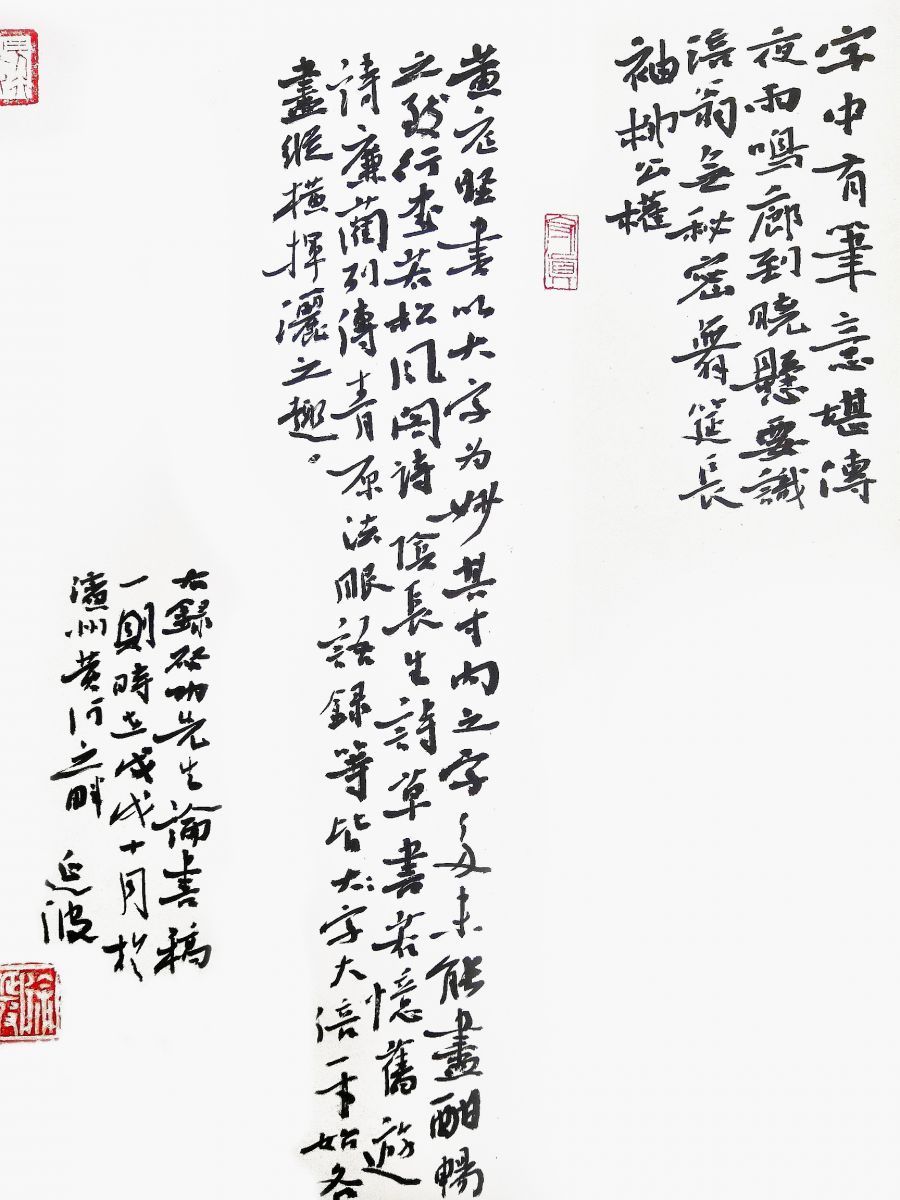 字中有筆意堪傳
夜雨鳴廊到曉懸要識
涪翁無秘密舞筵長
袖柳公權
黄庭堅書以大字为妙其寸内之字多未能盡酣暢
之致行書若松风阁诗陰長生詩草書若憶舊遊
诗廉藺列傳青原法眼語録等皆大字大倍一寸始各
盡縱横揮灑之趣。
右録啓功先生論書稿
一則時在戊戌十月於
濱州黄河之畔 延波